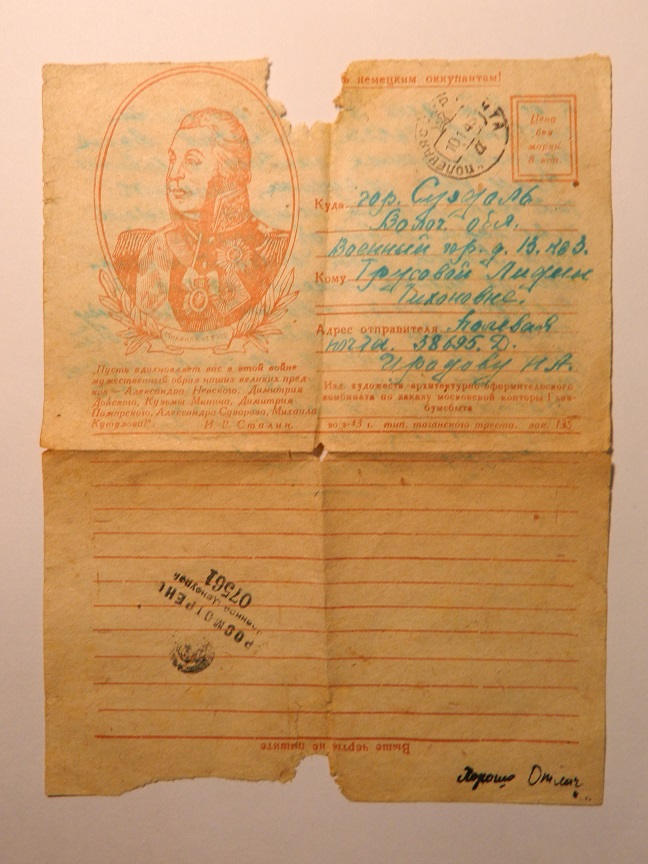 ь немецким оккупантам!
"ПОЛЕВАЯ ПОЧТА
Цена
без
марки
8 коп.
Куда гор. Суздаль
Военный гор-д. 13. кв 3.
Кому Трусовой Лидии
Тихоновне.
Адрес отправителя Полевая
почта. 38695. Д.
„Пусть вдохновляет вас в этой войне
мужественный образ наших великих пред-
ков — Александра Невского, Димитрия
Донского, Кузьмы Минина, Димитрия
Пожарского, Александра Суворова, Михаила
Кутузова!".
И. В. Сталин.
Изд. художеств.-архитектурно-оформительского
комбината по заказу московской конторы
тип. таганского треста. зак. 135
ПРОСМОТРЕНО
Военной Цензурой
07561
Выше черты не пишите
Хорошо Отлич